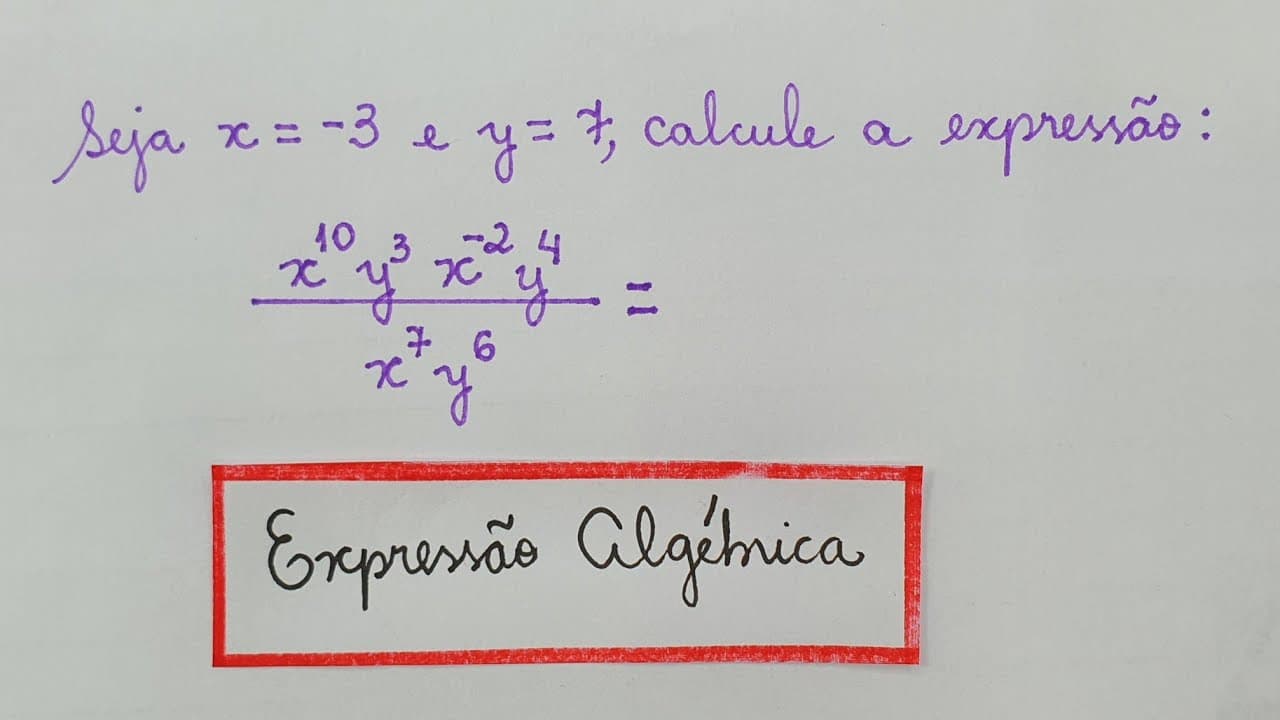 Seja x = -3 e y = 7, calcule a expressão:
x¹⁰y³ x⁻²y⁴ =
x⁷y⁶
Expressão Algébrica